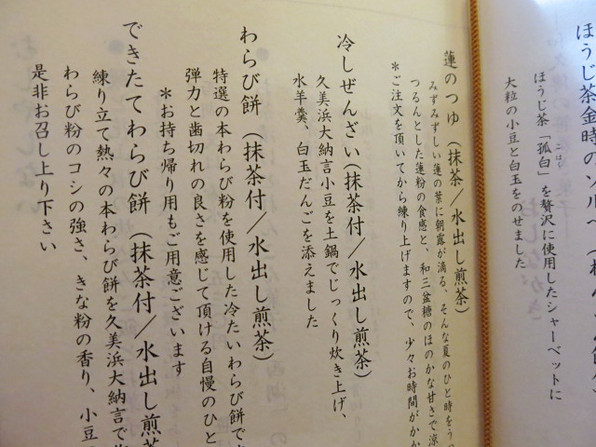 ほうじ茶金時のソルベ
ほうじ茶「孤白」を贅沢に使用したシャーベットに
こはく
大粒の小豆と白玉をのせました
蓮のつゆ（抹茶／水出し煎茶）
みずみずしい蓮の葉に朝露が滴る、そんな夏のひと時をう
つるんとした蓮粉の食感と、和三盆糖のほのかな甘さで涼
＊ご注文を頂いてから練り上げますので、少々お時間がか
冷しぜんざい（抹茶付／水出し煎茶）
久美浜大納言小豆を土鍋でじっくり炊き上げ、
水羊羹、白玉だんごを添えました
わらび餅（抹茶付／水出し煎茶）
特選の本わらび粉を使用した冷たいわらび餅で
弾力と歯切れの良さを感じて頂ける自慢のひと
＊お持ち帰り用もご用意ございます
できたてわらび餅（抹茶付／水出し煎茶
練り立て熱々の本わらび餅を久美浜大納言で
わらび粉のコシの強さ、きな粉の香り、小豆
是非お召し上り下さい